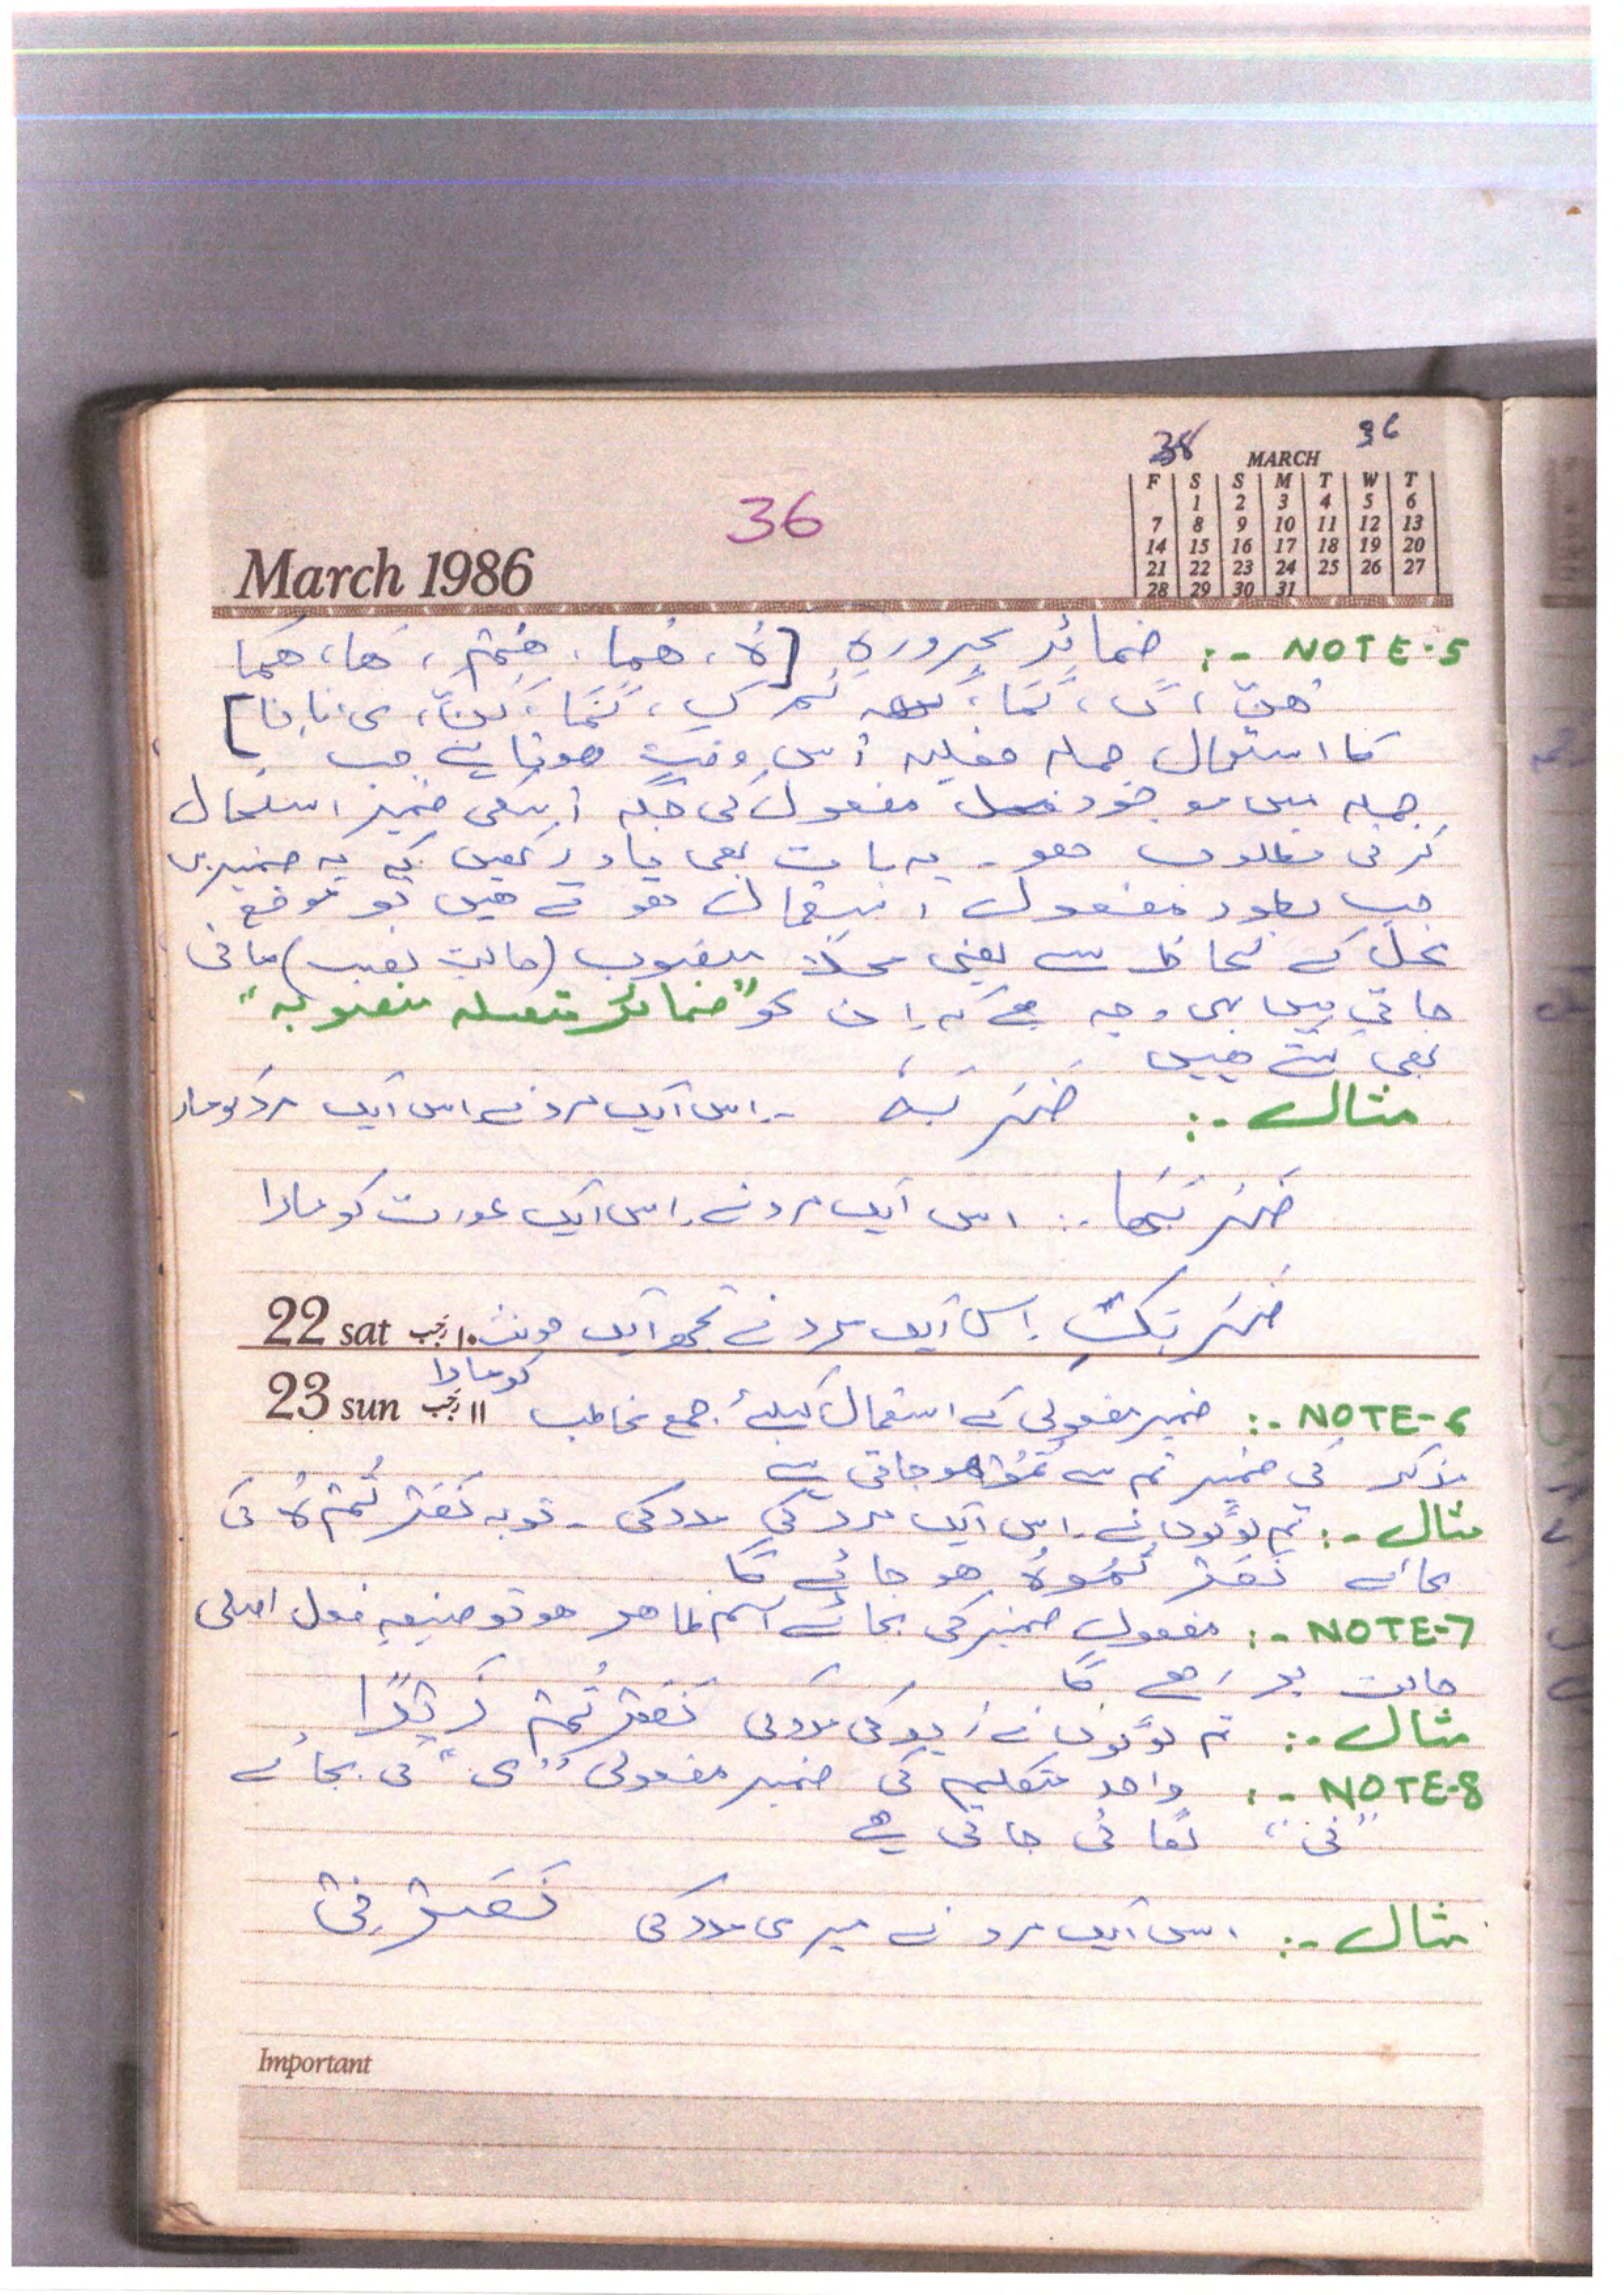 38 36
MARCH
F S S M T W T
1 2 3 4 5 6
7 8 9 10 11 12 13
14 15 16 17 18 19 20
21 22 23 24 25 26 27
28 29 30 31
36
March 1986
NOTE-5 :- ضمائر مجرورہ [ہُ، ھُمَا، ھُمْ، ھَا، ھُمَا
ھُنَّ، کَ، کُمَا، کُمْ کِ، کُمَا، کُنَّ، ی، نَا]
کا استعمال جملہ فعلیہ اُس وقت ھوتا ہے جب
جملہ میں موجود مفعول کی جگہ اُسکی ضمیر استعمال
کرنی مطلوب ھو۔ یہ بات بھی یاد رکھیں کہ یہ ضمیریں
جب بطور مفعول استعمال ھوتے ھیں تو موقع
محل کے لحاظ سے یعنی محلاً منصوب (حالت نصب) مانی
جاتی ہیں یہی وجہ ہے کہ اِن کو "ضمائر متصلہ منصوبہ"
بھی کہتے ھیں
مثال :- ضَرَبَہُ ۔ اس ایک مرد نے اس ایک مرد کو مارا
ضَرَبَھَا :- اس ایک مرد نے اس ایک عورت کو مارا
ضَرَبَکِ اس ایک مرد نے تجھ ایک مونث
22 sat ۱۰ رجب
کو مارا
23 sun ۱۱ رجب
NOTE-6 :- ضمیر مفعولی کے استعمال کیلئے جمع مخاطب
مذکر کی ضمیر تم سے تُمُوْا ھو جاتی ہے
مثال :- تم لوگوں نے اس ایک مرد کی مدد کی ۔ تو یہ نَصَرْتُمْ ہُ کی
بجائے نَصَرْتُمُوْہُ ھو جائے گا
NOTE-7 :- مفعول ضمیر کی بجائے اسم ظاھر ھو تو صیغہ فعل اصلی
حالت پر رَھے گا
مثال :- تم لوگوں نے زید کی مدد کی نَصَرْتُمْ زَیْدًا
NOTE-8 :- واحد متکلم کی ضمیر مفعولی "ی" کی بجائے
"نی" لگائی جاتی ہے
مثال :- اس ایک مرد نے میری مدد کی نَصَرَنِی
Important